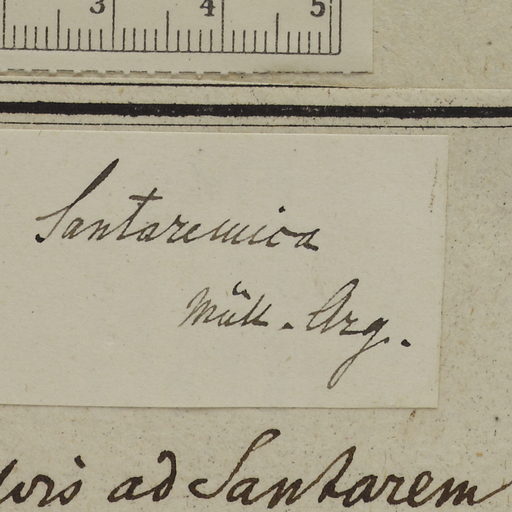 3 4 5
Santaremica
Müll. Arg.
ad Santarem